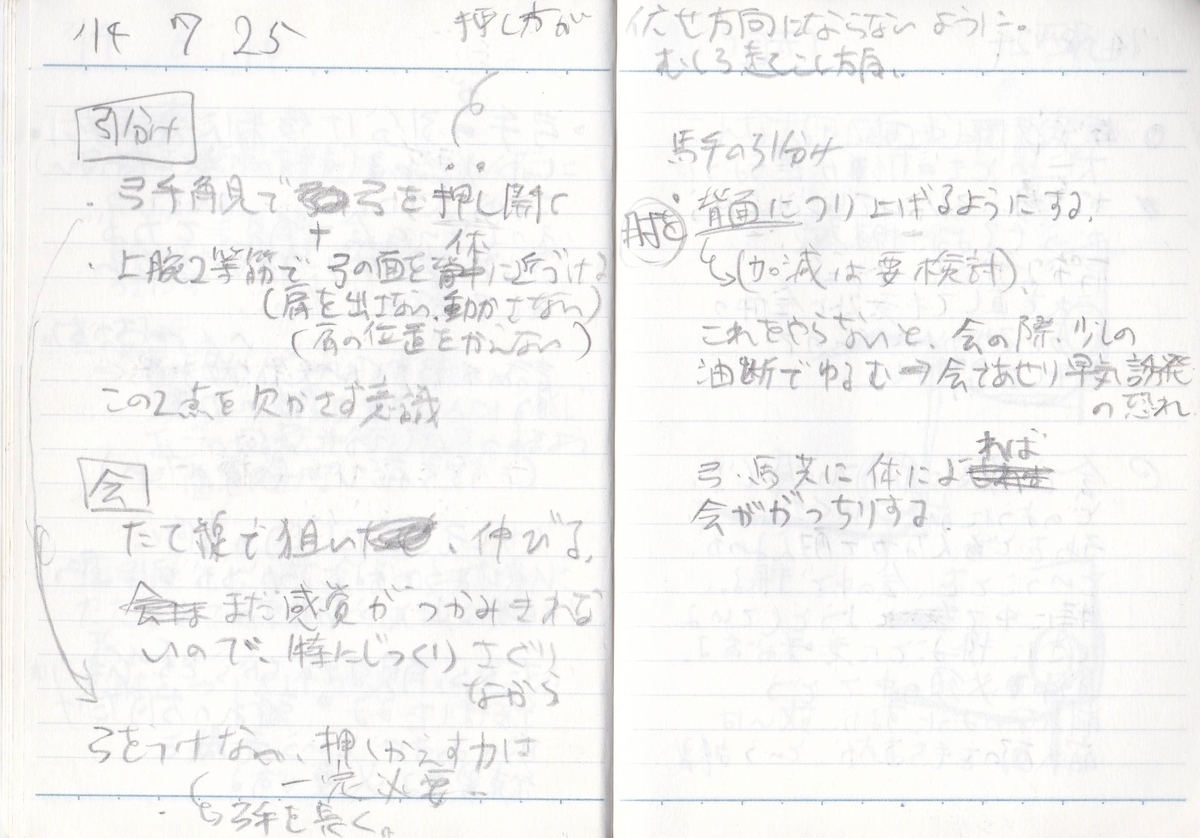 '14 7 25
押し方が
伏せ方向にならないように。
むしろ起こし方向。
引分け
・弓手角見で弓を押し開く
+
・上腕2等筋で弓の面を体に近づける
(肩を出さない、動かさない)
(肩の位置をかえない)
この2点を欠かさず意識
会
たて線で狙い、伸びる。
まだ感覚がつかみきれな
いので、特にじっくりさぐり
ながら
弓をうけない、押しかえす力は
一定必要
↳弓手を長く。
馬手の引分け
・肘を背面につり上げるようにする。
↳(加減は要検討)。
これをやらないと、会の際、少しの
油断でゆるむ→会であせり早気誘発
の恐れ
弓・馬共に体によれば
会ががっちりする。